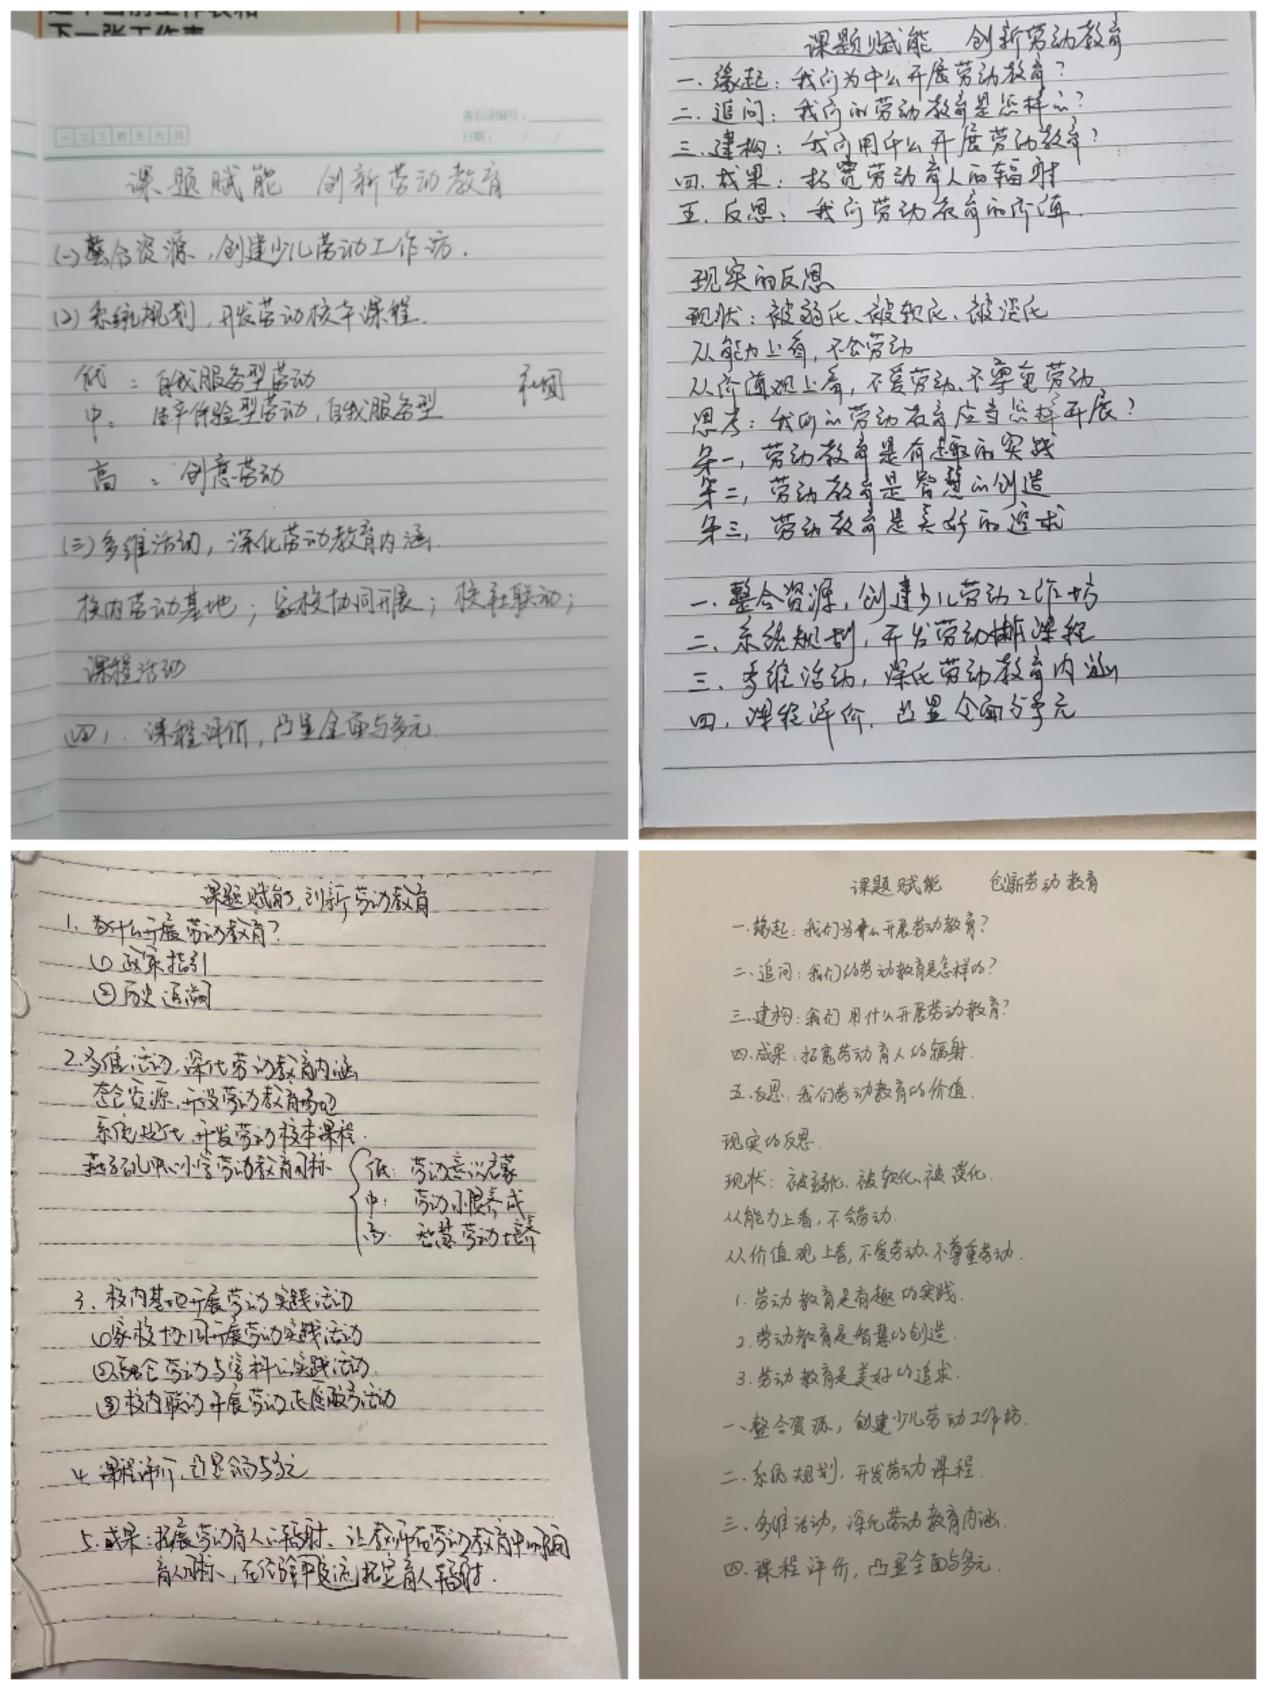 下一张工作表
一二三四五六日
备忘录编号:
日期: / /
课题赋能 创新劳动教育
(一)整合资源,创建少儿劳动工作坊.
(2)系统规划,开发劳动校本课程.
低:自我服务型劳动 社团
中:生产体验型劳动,自我服务型
高:创意劳动
(三)多维活动,深化劳动教育内涵
校内劳动基地;家校协同开展;校社联动;
课程活动
四,.课程评价,凸显全面与多元.
课题赋能 创新劳动教育
一.缘起:我们为什么开展劳动教育?
二.追问:我们的劳动教育是怎样的?
三.建构:我们用什么开展劳动教育?
四.成果:拓宽劳动育人的辐射
五.反思:我们劳动教育的价值.
现实的反思
现状:被弱化、被软化、被淡化
从能力上看,不会劳动
从价值观上看,不爱劳动、不尊重劳动
思考:我们的劳动教育应当怎样开展?
第一,劳动教育是有趣的实践
第二,劳动教育是智慧的创造
第三,劳动教育是美好的追求
一.整合资源,创建少儿劳动工作坊
二.系统规划,开发劳动课程
三.多维活动,深化劳动教育内涵
四,课程评价.凸显全面与多元
课题赋能,创新劳动教育
1.为什么开展劳动教育?
①政策指引
②历史追溯
2.多维活动,深化劳动教育内涵
整合资源,开设劳动教育场地
系统规划,开发劳动校本课程.
燕子矶中心小学劳动教育目标
低:劳动意识启蒙
中:劳动习惯养成
高:智慧劳动培养
3.校内基地开展劳动实践活动
①家校协同开展劳动实践活动
②融合劳动与学科的实践活动.
③校内联动开展劳动志愿服务活动
4.课程评价,凸显全面与多元
5.成果:拓展劳动育人的辐射、让教师在劳动教育中明确
育人目标、在经验中反思,拓宽育人辐射.
课题赋能 创新劳动教育
一.缘起:我们为什么开展劳动教育?
二.追问:我们的劳动教育是怎样的?
三.建构:我们用什么开展劳动教育?
四.成果:拓宽劳动育人的辐射.
五.反思:我们劳动教育的价值.
现实的反思.
现状:被弱化、被软化、被淡化.
从能力上看,不会劳动.
从价值观上看,不爱劳动、不尊重劳动.
1.劳动教育是有趣的实践.
2.劳动教育是智慧的创造.
3.劳动教育是美好的追求.
一、整合资源,创建少儿劳动工作坊.
二.系统规划,开发劳动课程.
三.多维活动,深化劳动教育内涵.
四.课程评价,凸显全面与多元.